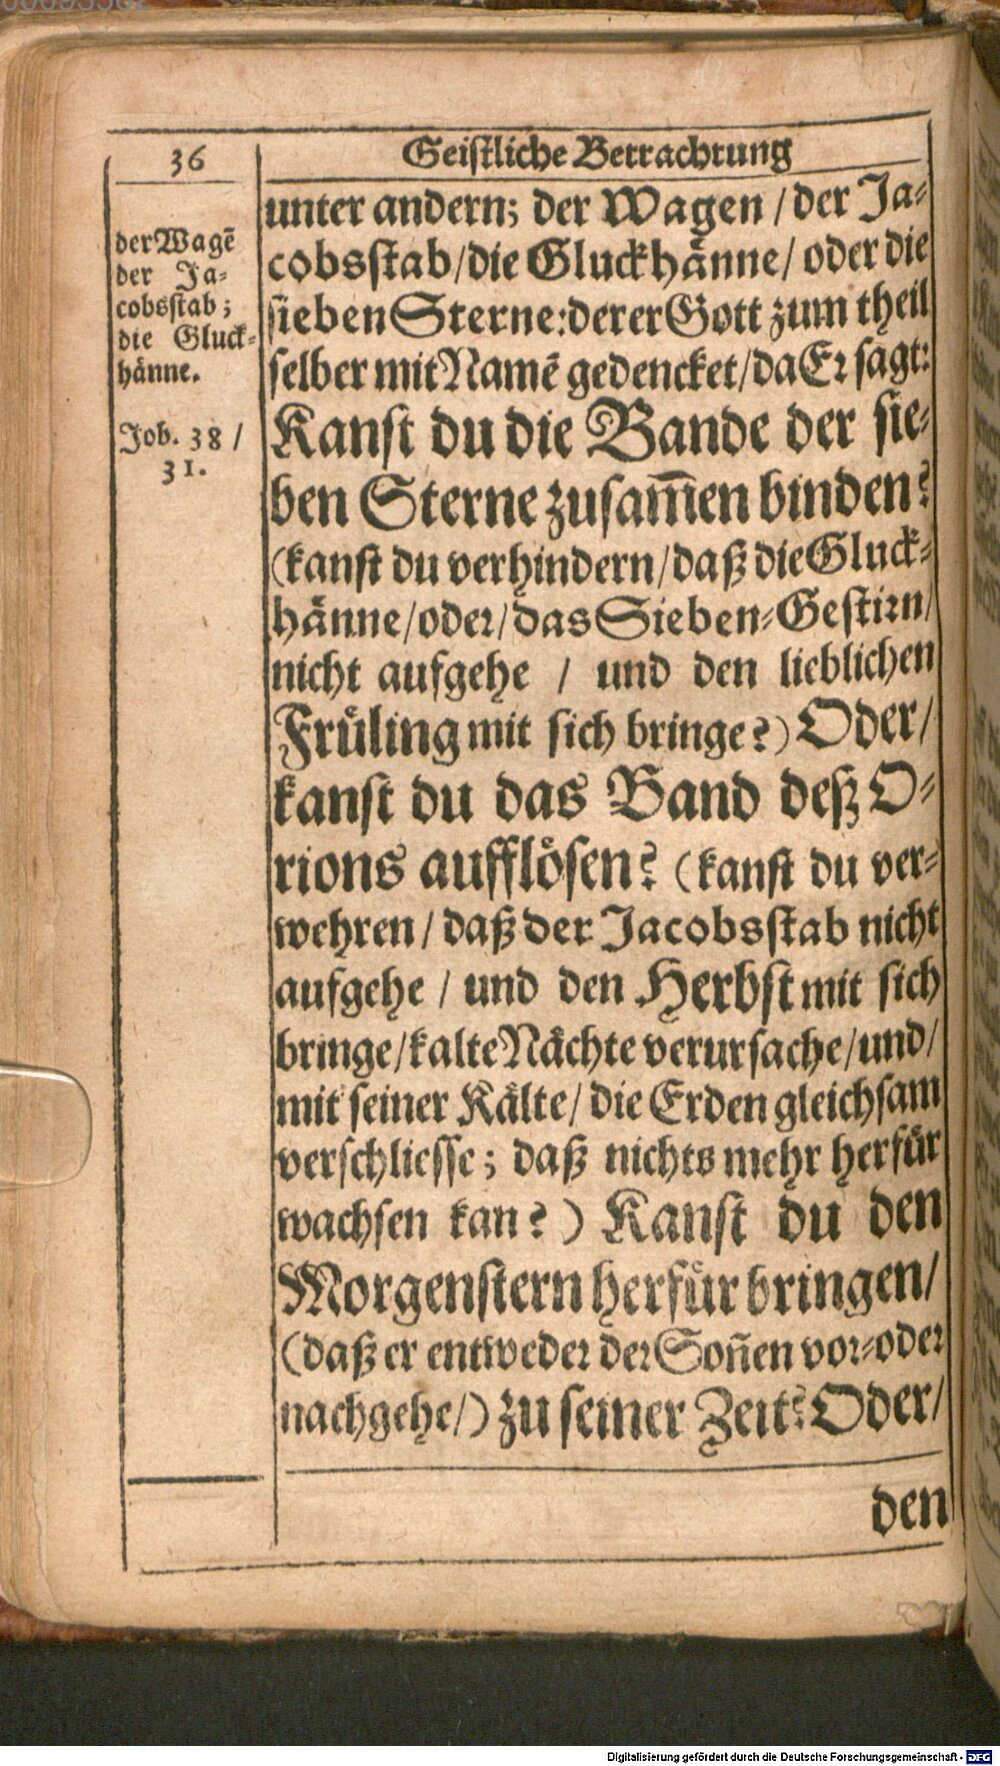 36
Geistliche Betrachtung
der Wagē
der Ja-
cobsstab;
die Gluck-
hänne.
Job. 38 /
31.
unter andern; der Wagen / der Ja-
cobsstab / die Gluckhänne / oder die
sieben Sterne: derer Gott zum theil
selber mit Namē gedencket / da Er sagt:
Kanst du die Bande der sie-
ben Sterne zusam̄en binden?
(kanst du verhindern / daß die Gluck-
hänne / oder / das Sieben-Gestirn /
nicht aufgehe / und den lieblichen
Früling mit sich bringe?) Oder /
kanst du das Band deß O-
rions aufflösen? (kanst du ver-
wehren / daß der Jacobsstab nicht
aufgehe / und den Herbst mit sich
bringe / kalte Nächte verursache / und /
mit seiner Kälte / die Erden gleichsam
verschliesse; daß nichts mehr herfür
wachsen kan?) Kanst du den
Morgenstern herfür bringen /
(daß er entweder der Son̄en vor-oder
nachgehe /) zu seiner Zeit? Oder /
den
Digitalisierung gefördert durch die Deutsche Forschungsgemeinschaft - DFG